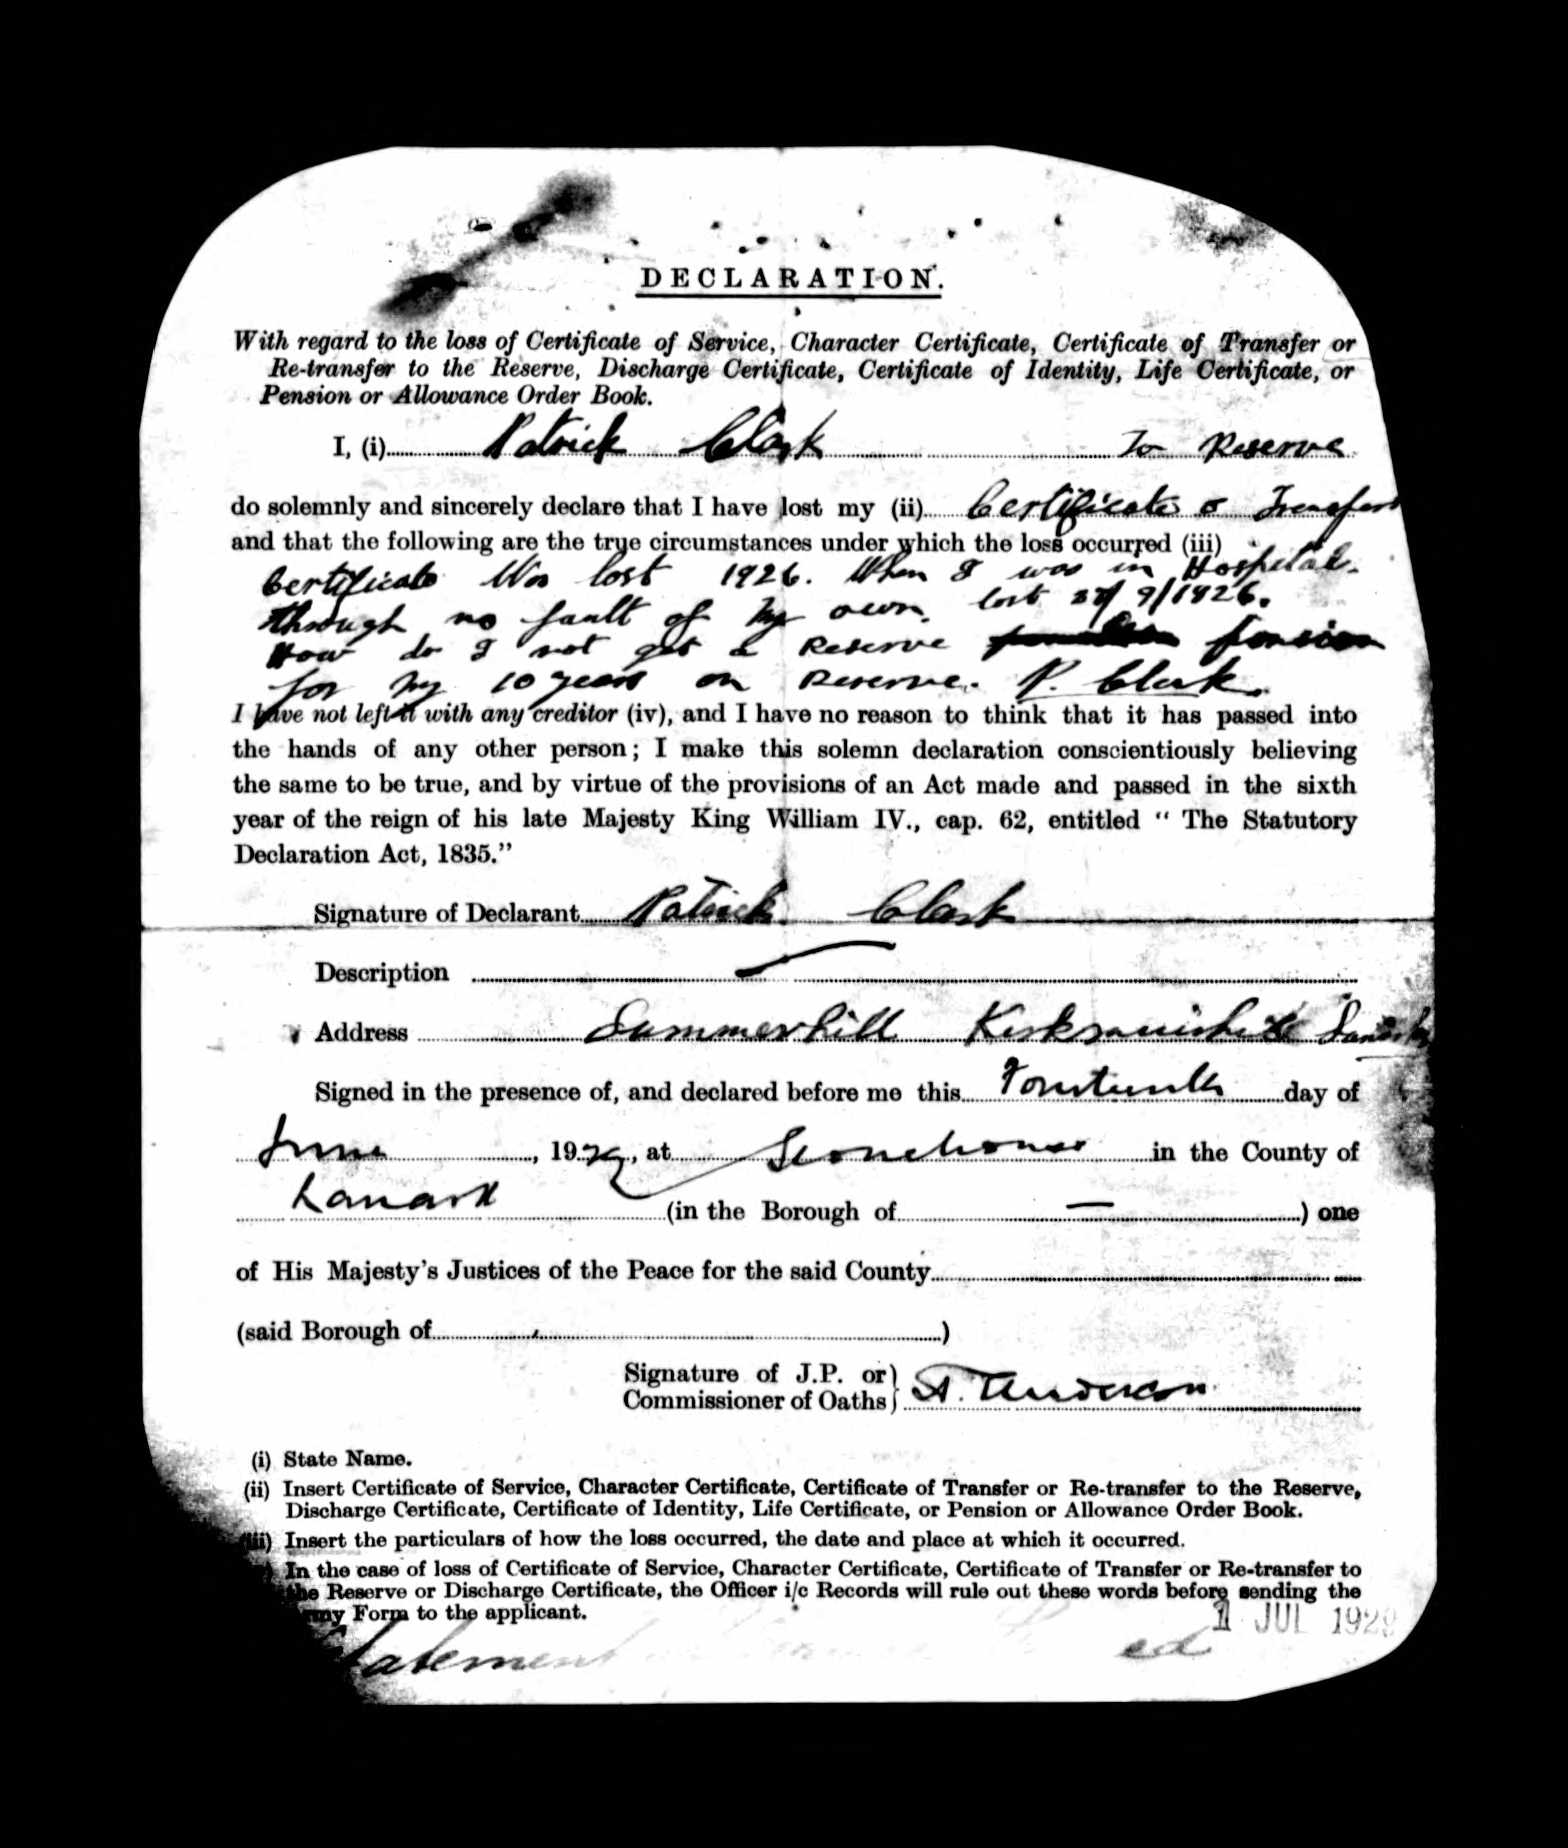 DECLARATION.
With regard to the loss of Certificate of Service, Character Certificate, Certificate of Transfer or
Re-transfer to the Reserve, Discharge Certificate, Certificate of Identity, Life Certificate, or
Pension or Allowance Order Book.
I, (i) Patrick Clark To Reserve
do solemnly and sincerely declare that I have lost my (ii) Certificate o Transfer
and that the following are the true circumstances under which the loss occurred (iii)
Certificate Was lost 1926. When I was in Hospital.
through no fault of my own. lost 9/1926.
How do I not get a Reserve pension
for my 10 years on Reserve. P. Clark.
I have not left it with any creditor (iv), and I have no reason to think that it has passed into
the hands of any other person; I make this solemn declaration conscientiously believing
the same to be true, and by virtue of the provisions of an Act made and passed in the sixth
year of the reign of his late Majesty King William IV., cap. 62, entitled “ The Statutory
Declaration Act, 1835.”
Signature of Declarant Patrick Clark
Description
Address Summerhill
Signed in the presence of, and declared before me this Fourteenth day of
June, 1929, at Stonehouse in the County of
Lanark (in the Borough of — ) one
of His Majesty's Justices of the Peace for the said County
(said Borough of )
Signature of J.P. or
Commissioner of Oaths } A. Anderson
(i) State Name.
(ii) Insert Certificate of Service, Character Certificate, Certificate of Transfer or Re-transfer to the Reserve,
Discharge Certificate, Certificate of Identity, Life Certificate, or Pension or Allowance Order Book.
(iii) Insert the particulars of how the loss occurred, the date and place at which it occurred.
In the case of loss of Certificate of Service, Character Certificate, Certificate of Transfer or Re-transfer to
the Reserve or Discharge Certificate, the Officer i/c Records will rule out these words before sending the
Form to the applicant.
1 JUL 1929